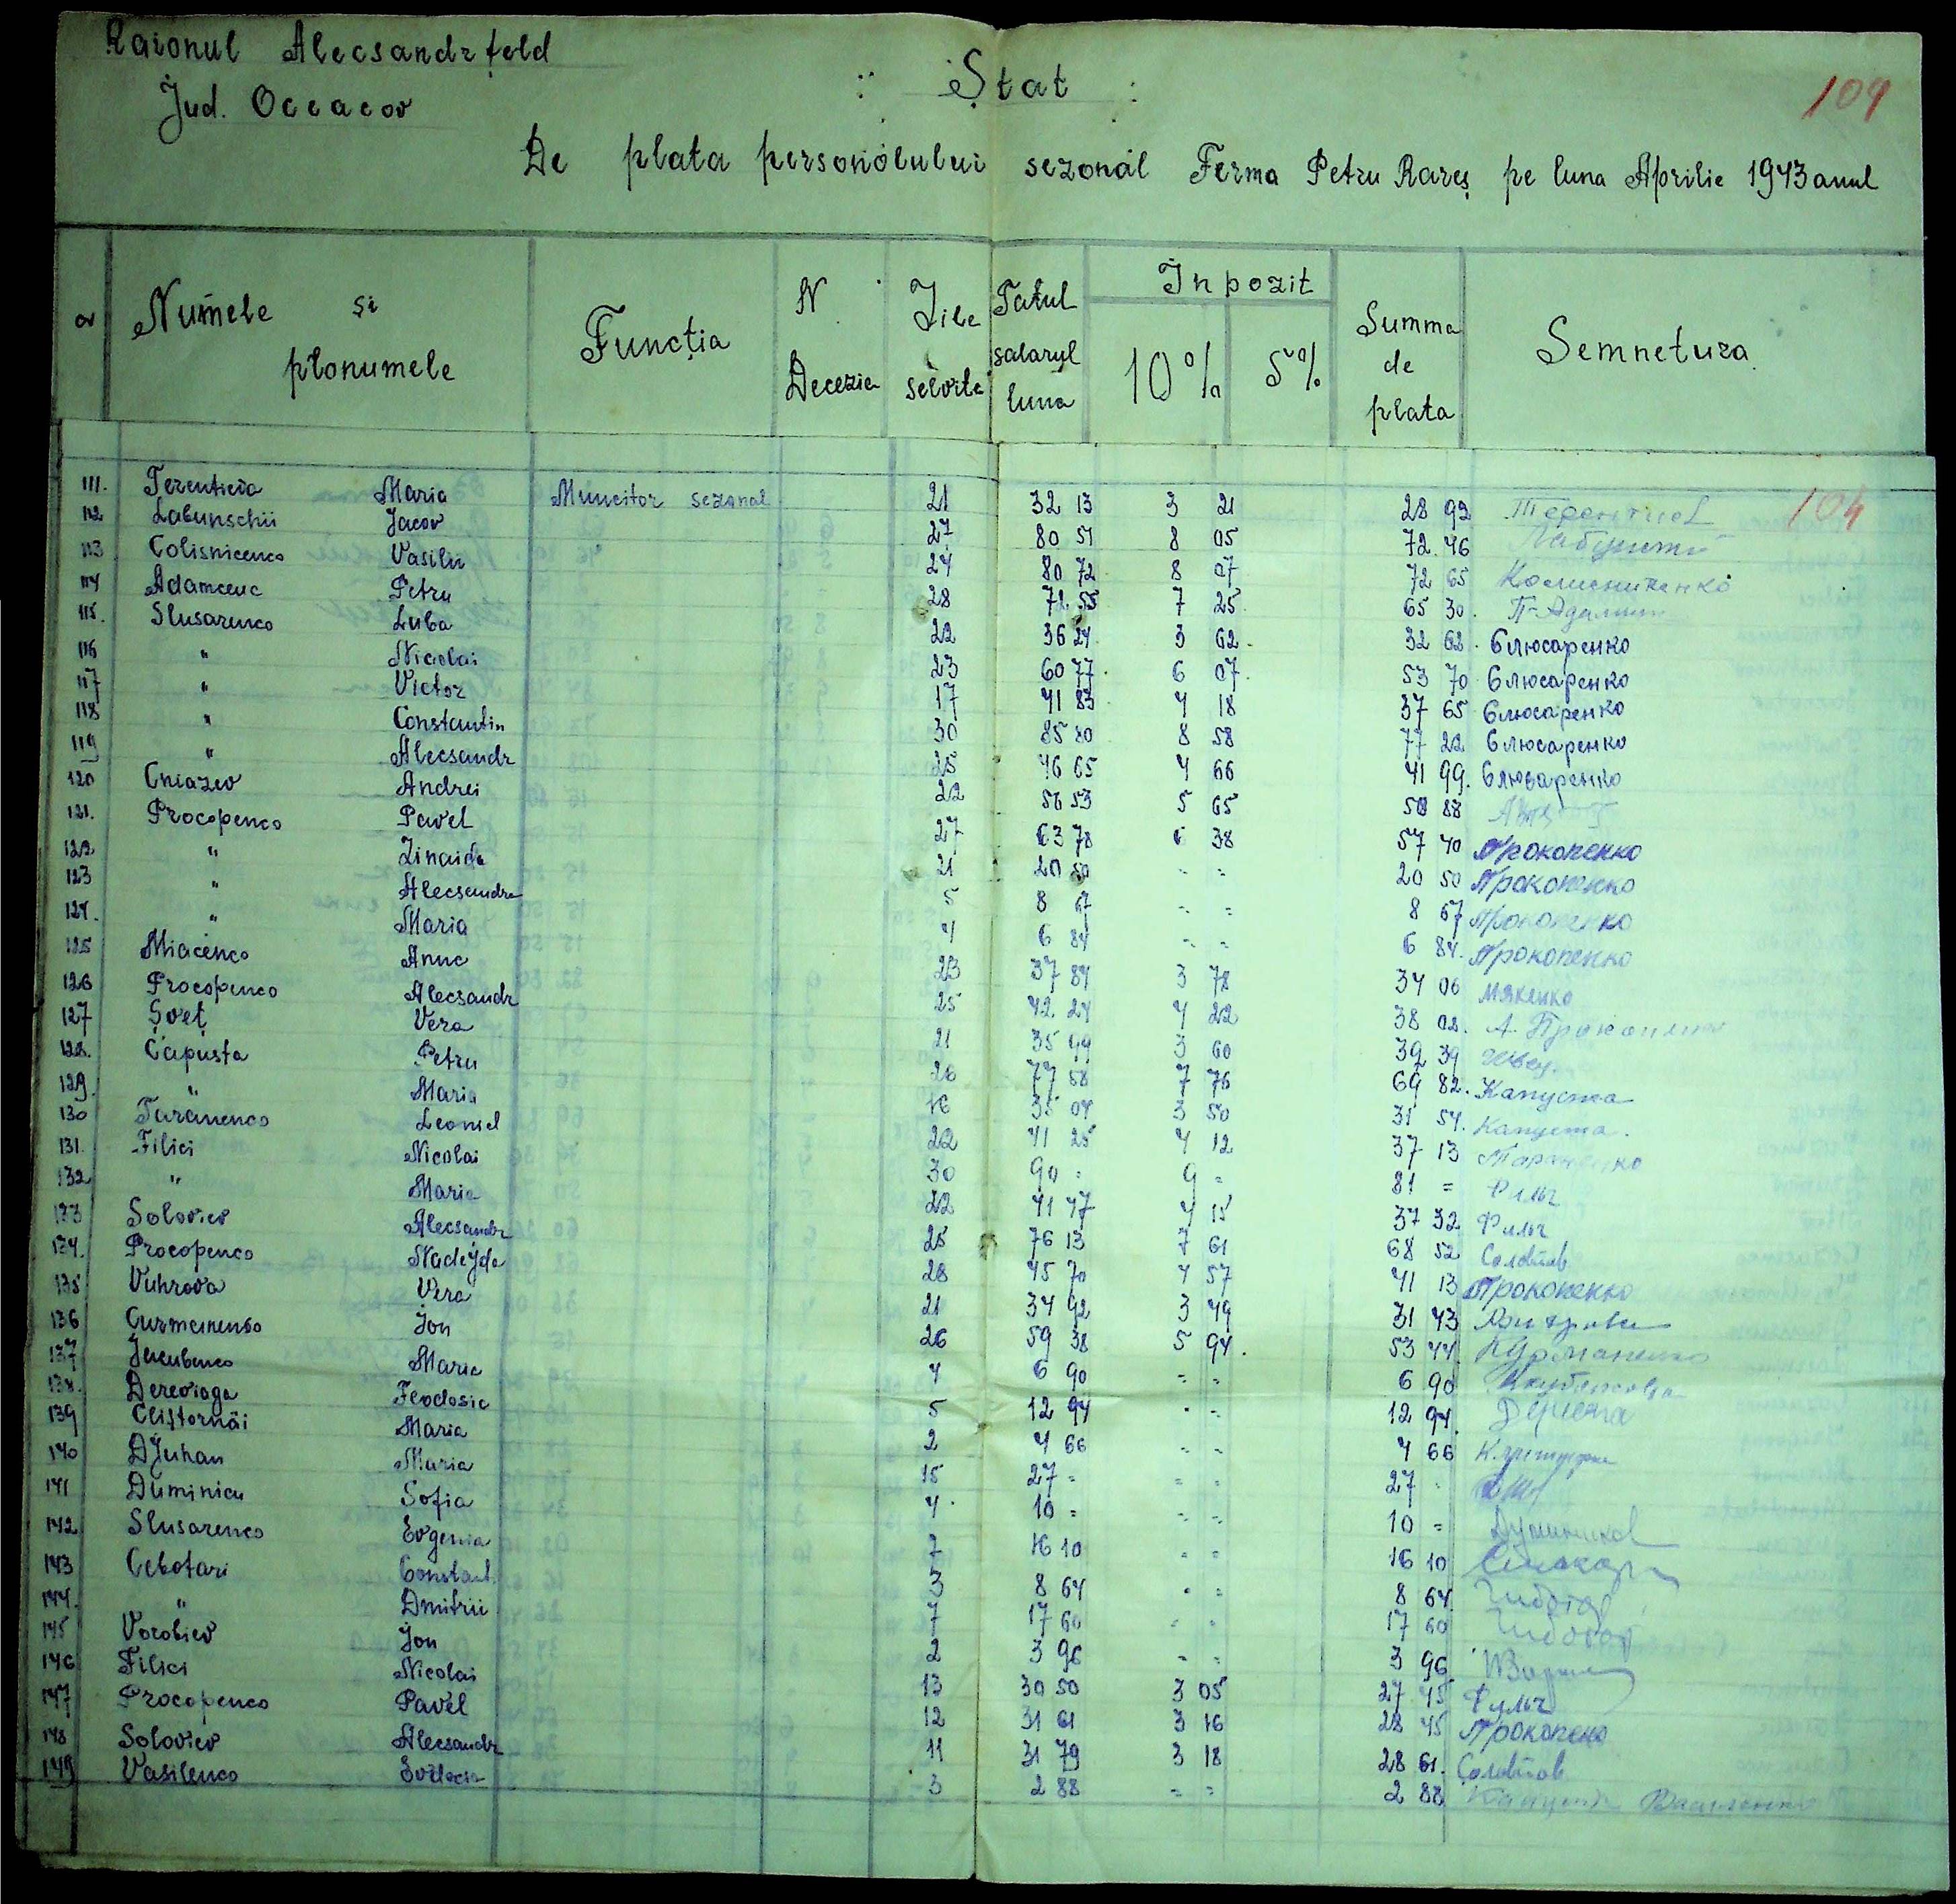 Raionul Alecsandrfeld
Jud. Oceacov
Ștat
104
De plata personolului sezonal Ferma Petru Rareș pe luna Aprilie 1943 anul
Numele și plonumele Funcția N Decezie Zile selvite Tatul salaryl luna Inpozit 10% 5% Summa de plata Semnetura
104
111. Terentieva Maria Muncitor sezonal 21 32 13 3 21 28 92
112 Labunschii Jacov 27 80 51 8 05 72 46
113 Colisnicenco Vasilii 24 80 72 8 07 72 65 Колисниченко
114 Adamcenc Petru 28 72 55 7 25 65 30
115. Slusarenco Luba 22 36 24 3 62 32 62 Слюсаренко
116 " Nicolai 23 60 77 6 07 53 70 Слюсаренко
117 " Victor 17 41 83 4 18 37 65 Слюсаренко
118 " Constantin 30 85 80 8 58 77 22 Слюсаренко
119 " Alecsandr 25 46 65 4 66 41 99. Слюсаренко
120 Cniazev Andrei 22 56 53 5 65 50 88
121. Procopenco Pavel 27 63 78 6 38 57 40 Прокопенко
122 " Zinaida 21 20 50 - - 20 50 Прокопенко
123 " Alecsandra 5 8 67 - = 8 67 Прокопенко
124. " Maria 4 6 84 - - 6 84. Прокопенко
125 Miacenco Anna 23 37 84 3 78 34 06 Мякенко
126 Procopenco Alecsandr 25 42 24 4 22 38 02. А. Прокопенко
127 Șveț Vera 21 35 99 3 60 32 39
128. Capusta Petru 26 77 58 7 76 69 82. Капуста
129. " Maria 16 35 04 3 50 31 54. Капуста.
130 Taranenco Leonid 22 41 25 4 12 37 13 Тараненко
131. Filici Nicolai 30 90 = 9 = 81 = Фильч
132 " Maria 22 41 47 4 15 37 32 Фильч
133 Soloviev Alecsandr 25 76 13 7 61 68 52 Соловьев
134. Procopenco Nadejda 28 45 70 4 57 41 13 Прокопенко
135 Vuhrova Vera 21 34 92 3 49 31 43
136 Curmanenco Jon 26 59 38 5 94. 53 44 Курманенко
137 Jacubenco Maria 4 6 90 = - 6 90
138. Derevioga Feodosia 5 12 94 - - 12 94
139 Cliștornâi Maria 2 4 66 - - 4 66
140 Djuhan Maria 15 27 = - - 27
141 Duminica Sofia 4 10 = - - 10 =
142 Slusarenco Evgenia 7 16 10 - = 16 10
143 Cebotari Constant. 3 8 64 - = 8 64
144. " Dmitrii 7 17 60 - - 17 60
145 Vorobiev Jon 2 3 96 - = 3 96
146 Filici Nicolai 13 30 50 3 05 27 45 Фильч
147 Procopenco Pavel 12 31 61 3 16 28 45 Прокопенко
148 Soloviev Alecsandr 11 31 79 3 18 28 61. Соловьев
149 Vasilenco 3 2 88 = = 2 88 Василенко